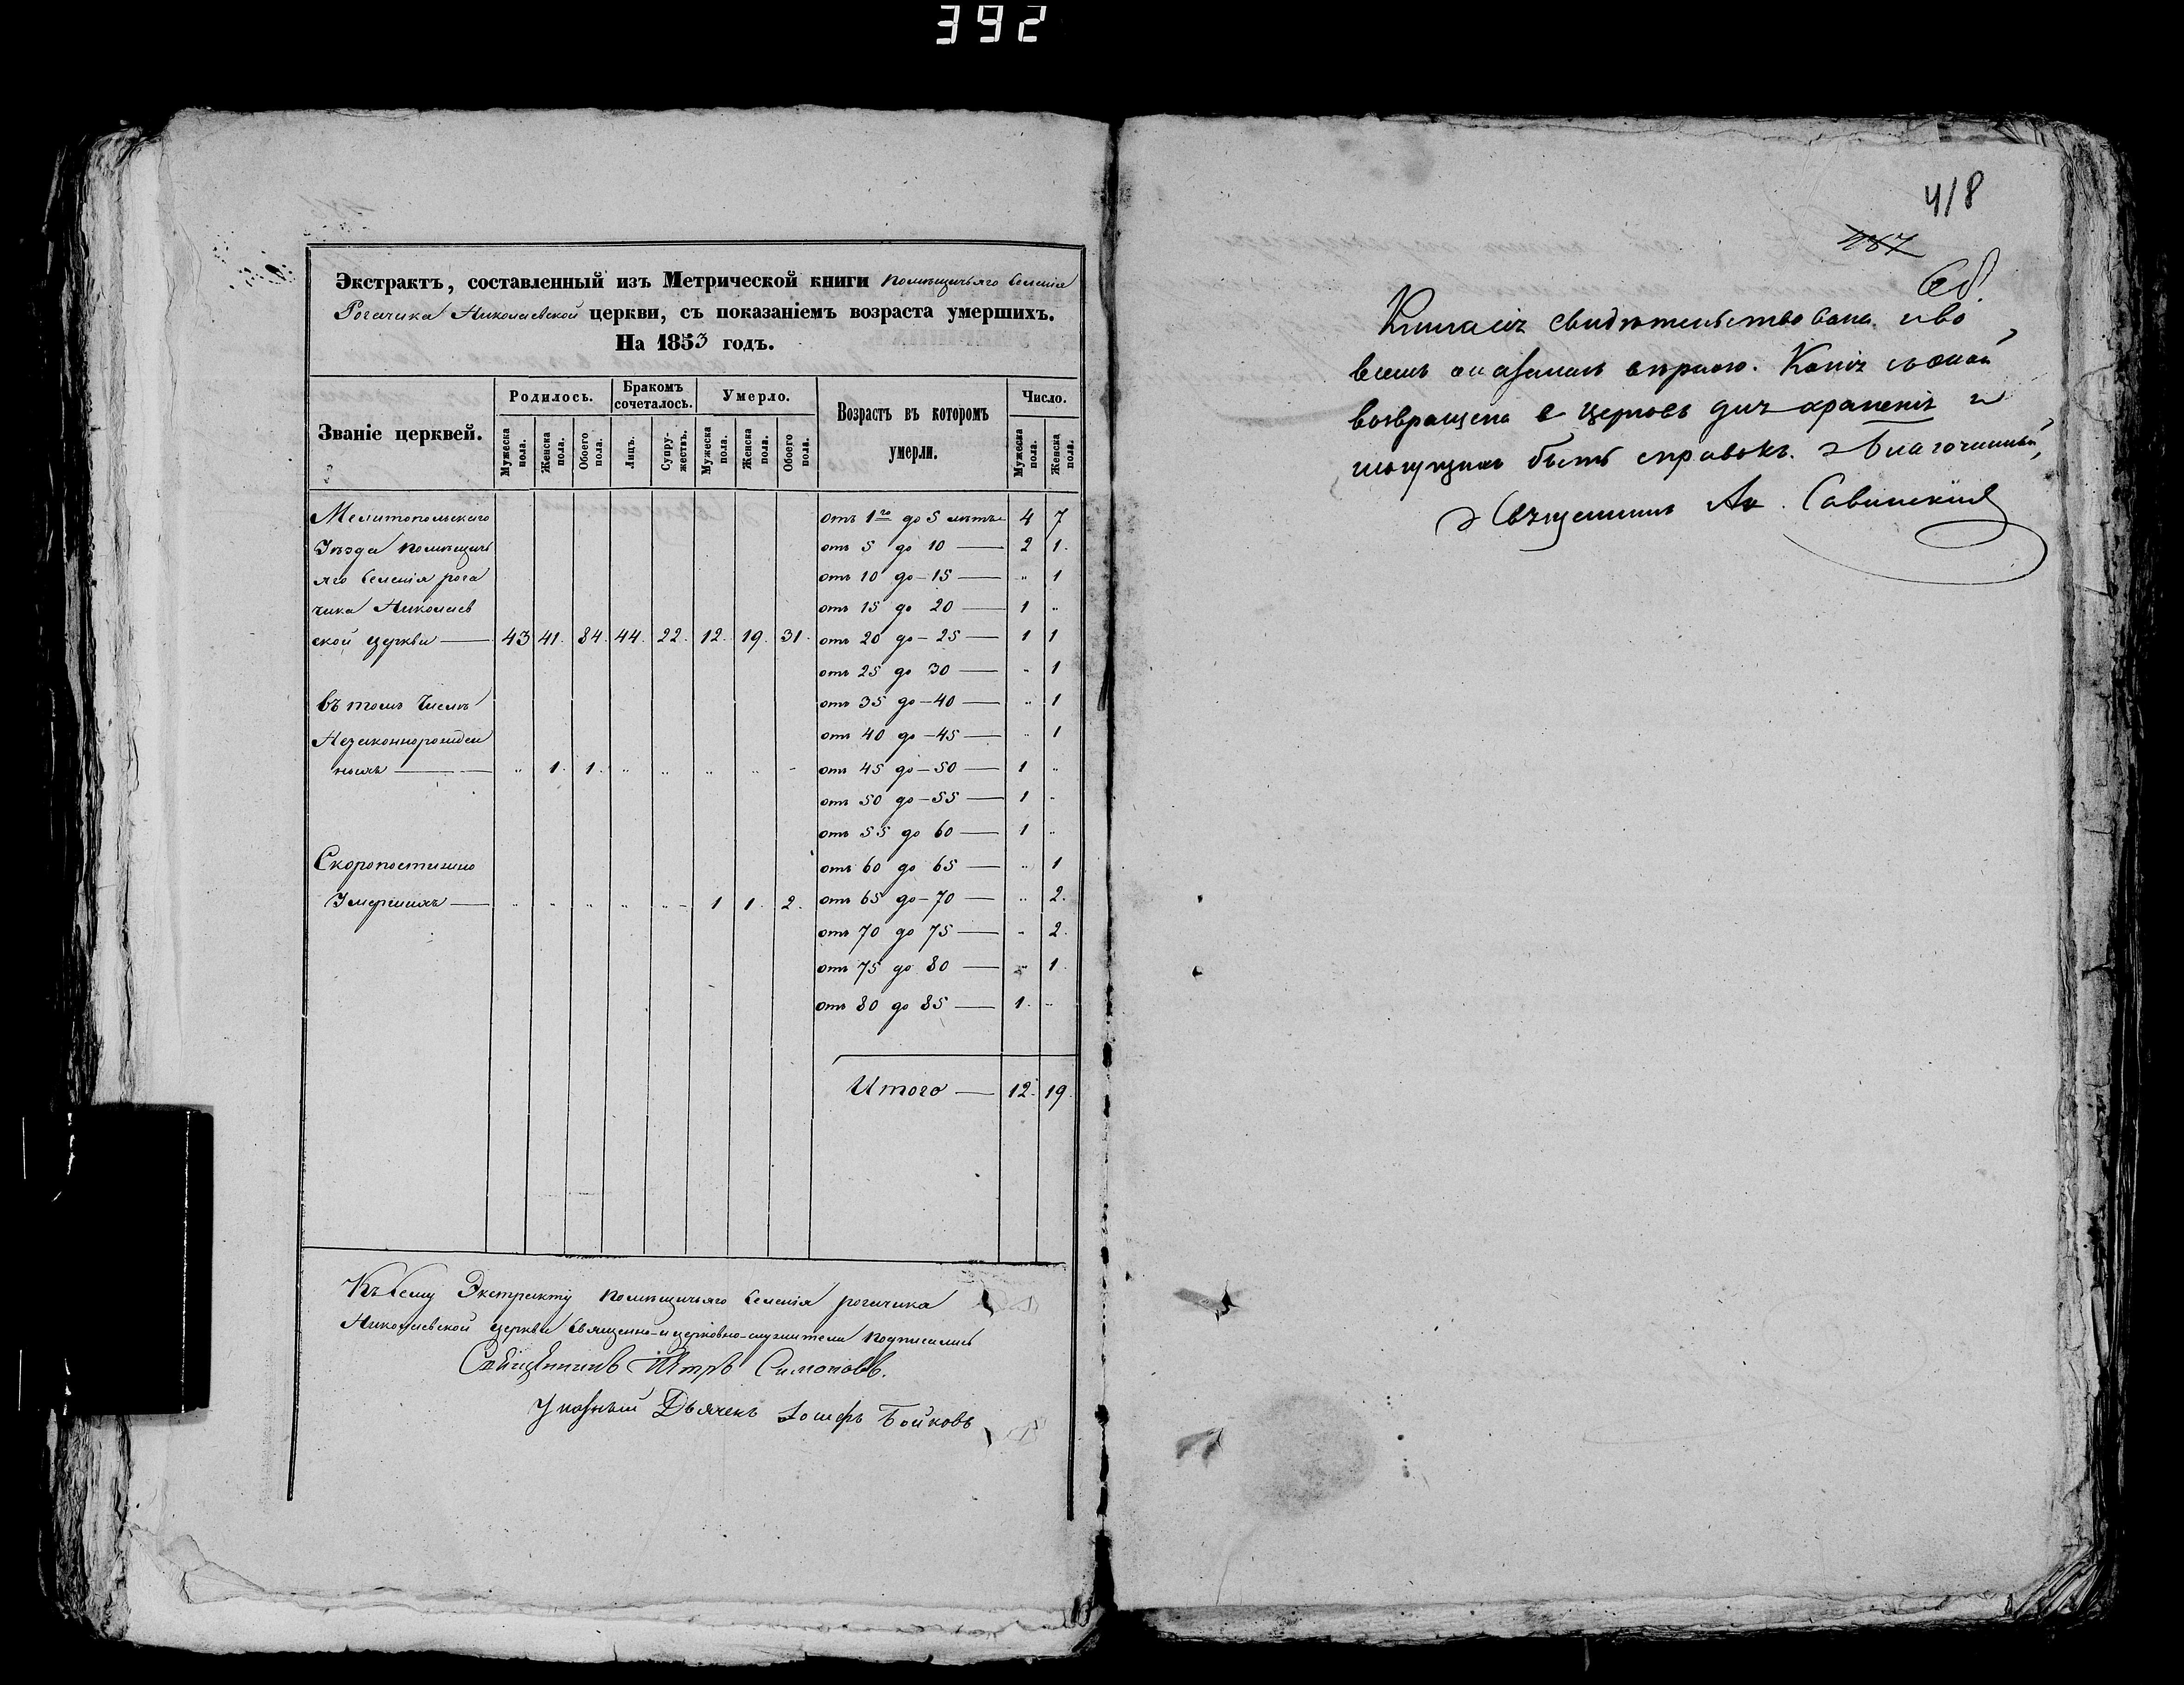 392
Экстрактъ, составленный изъ Метрической книги помѣщичьяго Селенія
Рогачика Николаевской церкви, съ показаніемъ возраста умершихъ.
На 1853 годъ.
Званіе церквей.
Родилось.
Бракомъ сочеталось.
Умерло.
Возрастъ въ которомъ умерли.
Число.
Мужеска пола.
Женска пола.
Обоего пола.
Лицъ.
Супружествъ.
Мужеска пола.
Женска пола.
Обоего пола.
Мужеска пола.
Женска пола.
Мелитопольскаго
Уѣзда помѣщичь
яго Селенія рога
чика Николаев
ской церкви — 43 41. 84. 44. 22. 12. 19. 31.
въ томъ числѣ
Незаконнорожден
ныхъ — „ 1. 1. „ „ „ „ „
Скоропостижно
Умершихъ — „ „ „ „ „ 1 1. 2.
отъ 1го до 5 лѣтъ 4 7
отъ 5 до 10 — 2 1.
отъ 10 до 15 — „ 1
отъ 15 до 20 — 1 „
отъ 20 до 25 — 1 1
отъ 25 до 30 — „ 1
отъ 35 до 40 — „ 1
отъ 40 до 45 — „ 1
отъ 45 до 50 — 1 „
отъ 50 до 55 — 1 „
отъ 55 до 60 — 1 „
отъ 60 до 65 — „ 1
отъ 65 до 70 — „ 2.
отъ 70 до 75 — „ 2.
отъ 75 до 80 — „ 1.
отъ 80 до 85 — 1. „
Итого — 12. 19.
Къ Сему Экстракту помѣщичьяго Селенія рогачика
Николаевской церкви Священно-и церковно-служители подписались
Священникъ Петръ Симоновъ.
Указный Дьячекъ Іосифъ Бойковъ
418
487
Книга сія свидѣтельствована и во
всемъ оказалась вѣрною. Копія съ оной
возвращена в церковь для храненія и
могущихъ быть справокъ. Благочинный,
Священникъ Ал. Савинскій